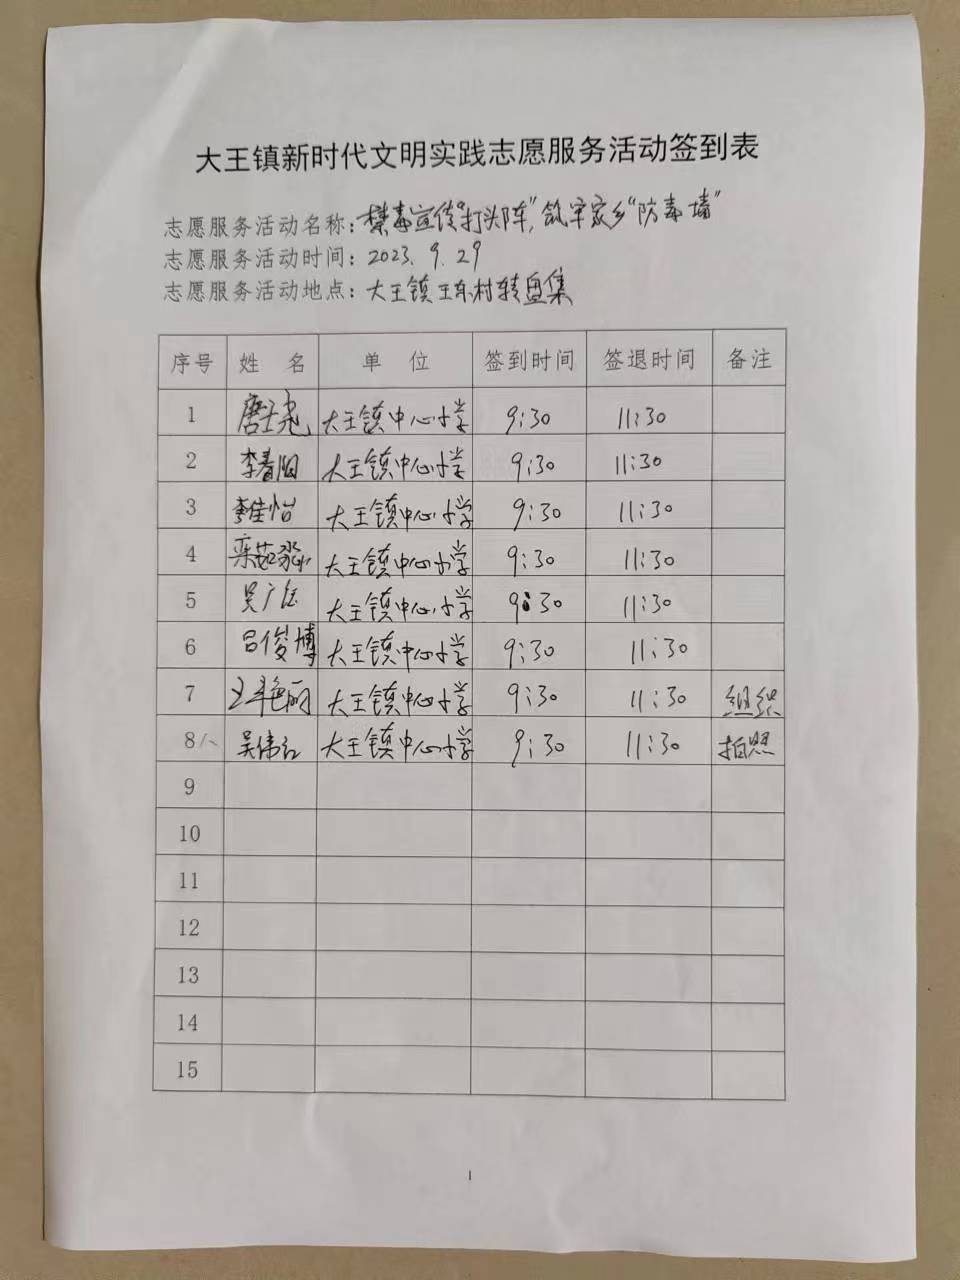 大王镇新时代文明实践志愿服务活动签到表
志愿服务活动名称：禁毒宣传“打头阵”，筑牢家乡“防毒墙”
志愿服务活动时间：2023.9.29
志愿服务活动地点：大王镇王东村转盘集
序号 姓 名 单 位 签到时间 签退时间 备注
1 大王镇中心小学 9:30 11:30
2 李春阳 大王镇中心小学 9:30 11:30
3 李佳怡 大王镇中心小学 9:30 11:30
4 栾茹淼 大王镇中心小学 9:30 11:30
5 大王镇中心小学 9:30 11:30
6 吕俊博 大王镇中心小学 9:30 11:30
7 王艳丽 大王镇中心小学 9:30 11:30 组织
8 吴伟红 大王镇中心小学 9:30 11:30 拍照
9
10
11
12
13
14
15
1